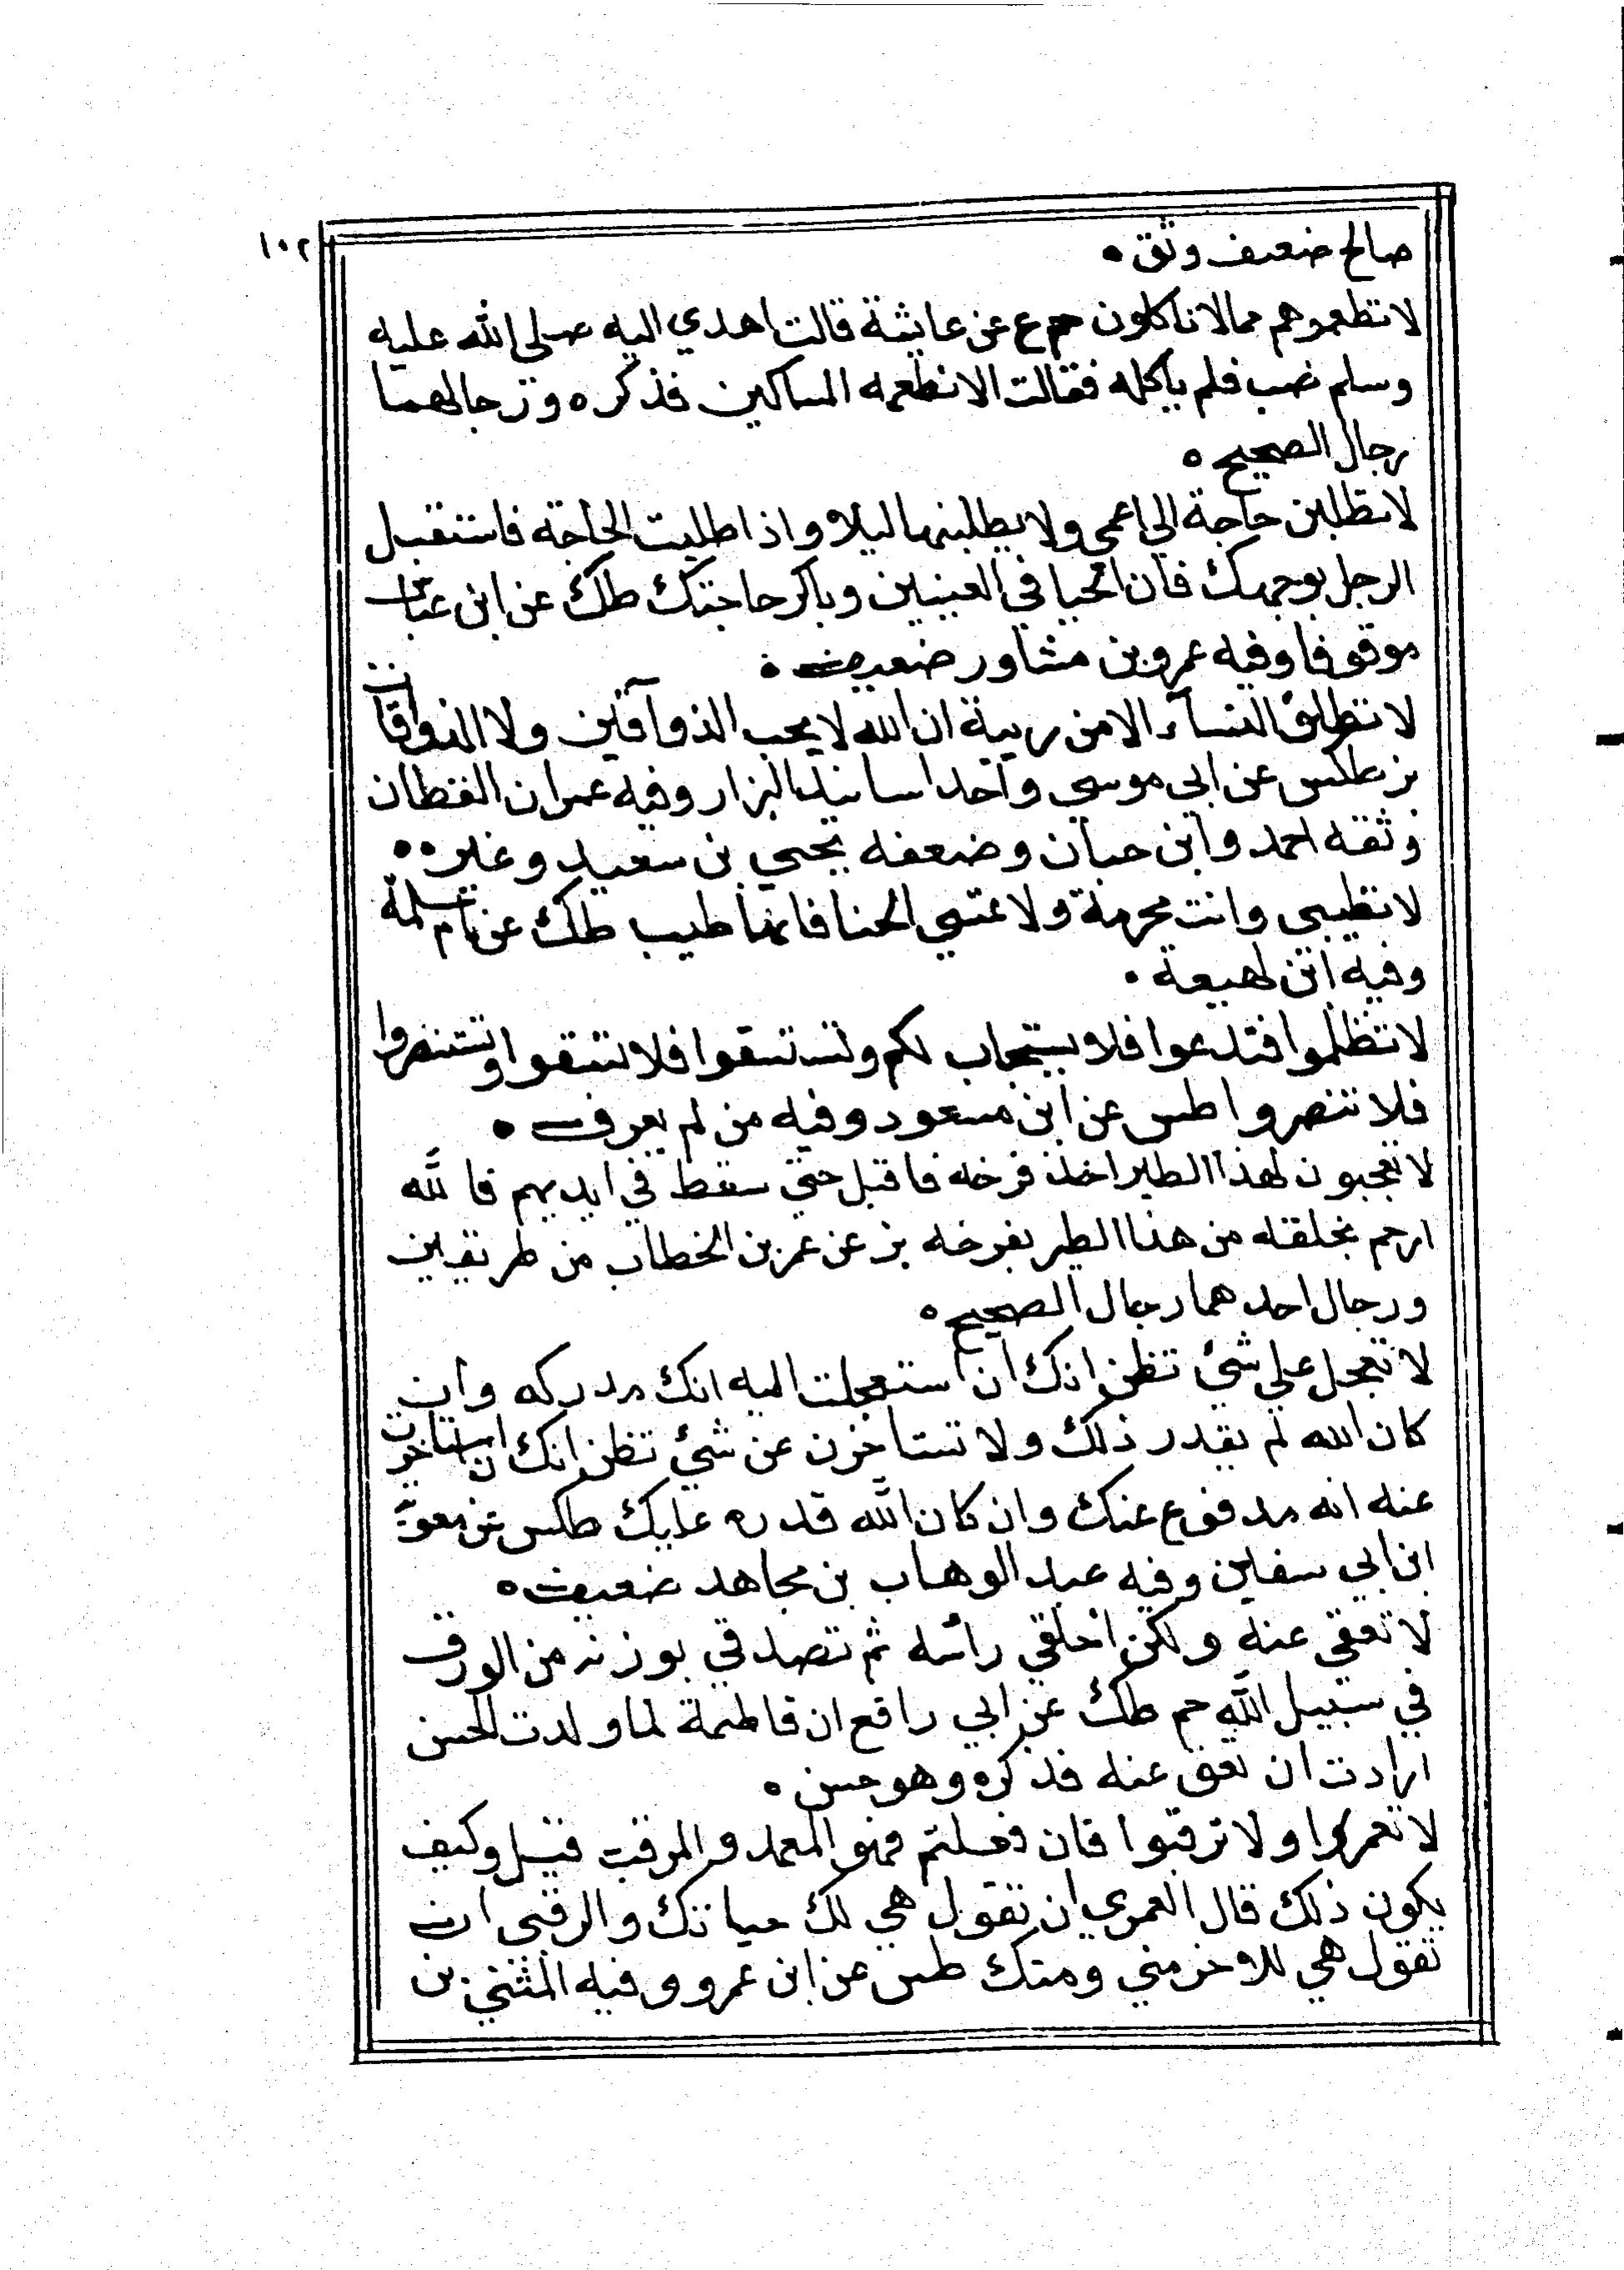 ١٠٢
صالح ضعيف وثق ٥
لا تطعموهم مما لا تاكلون حم ع عن عايشة قالت اهدي اليه صلى الله عليه
وسلم ضب فلم ياكله فقالت الا نطعمه المساكين فذكره ورجالهما
رجال الصحيح ٥
لا تطلبن حاجة الي اعمى ولا يطلبنها ليلا واذا طلبت الحاجة فاستقبل
الرجل بوجهك فان الحيا في العينين وباكر حاجتك طك عن ابن عباس
موقوفا وفيه عمرو بن مشاور ضعيف ٥
لا تطلق النسآء الا من ريبة ان الله لا يحب الذواقين ولا الذواقات
بز طكس عن ابي موسي واحد اسانيد البزار وفيه عمران القطان
وثقه احمد وابن حبان وضعفه يحيي بن سعيد وغيره ٥
لا تطيبي وانت محرمة ولا تمسي الحنا فانها طيب طك عن ام سلمة
وفيه ابن لهيعة ٠
لا تظلموا فتدعوا فلا يستجاب لكم وتستسقوا فلا تسقوا وتستنصروا
فلا تنصروا طس عن ابن مسعود وفيه من لم يعرف ٥
لا تعجبون لهذا الطير اخذ فرخه فاقبل حتي سقط في ايديهم فالله
ارحم بخلقه من هذا الطير بفرخه بز عن عمر بن الخطاب من طريقين
ورجال احدهما رجال الصحيح ٥
لا تعجل علي شئ تظن انك ان استعجلت اليه انك مدركه وان
كان الله لم يقدر ذلك ولا تستاخرن عن شئ تظن انك ان استاخرت
عنه انه مدفوع عنك وان كان الله قدره عليك طكس عن معوية
ابن ابي سفين وفيه عبد الوهاب بن مجاهد ضعيف ٥
لا تعقي عنه ولكن احلقي رأسه ثم تصدقي بوزنه من الورق
في سبيل الله حم طك عن ابي رافع ان فاطمة لما ولدت الحسن
ارادت ان تعق عنه فذكره وهو حسن ٥
لا تعمروا ولا ترقبوا فان فعلتم فهو المعمد والمرقب قيل وكيف
يكون ذلك قال العمري ان تقول هي لك حياتك والرقبى ان
تقول هي للاخر مني ومنك طس عن ابن عمرو وفيه المثني بن